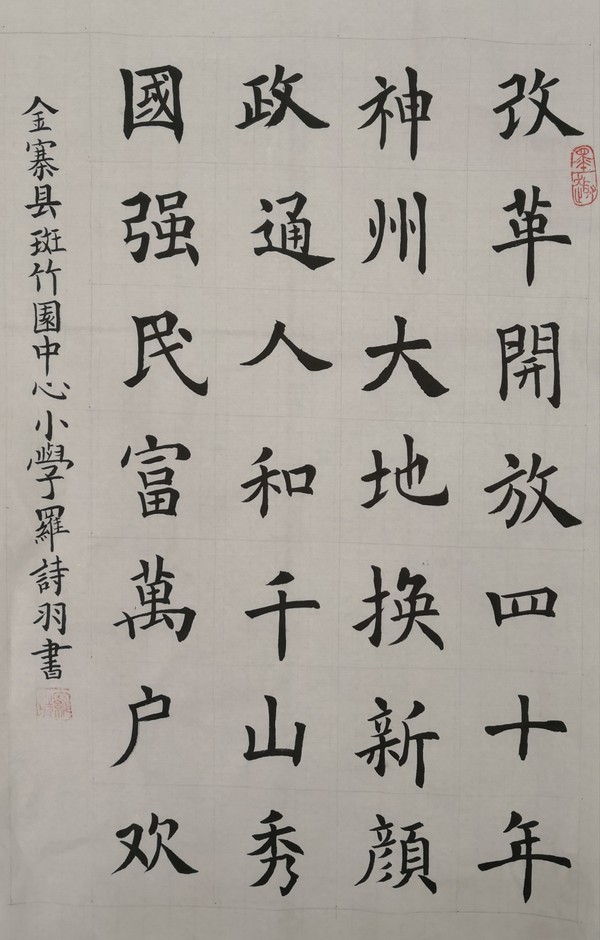 改革開放四十年
神州大地换新顔
政通人和千山秀
國强民富萬户欢
金寨县斑竹園中心小學羅詩羽書
墨趣